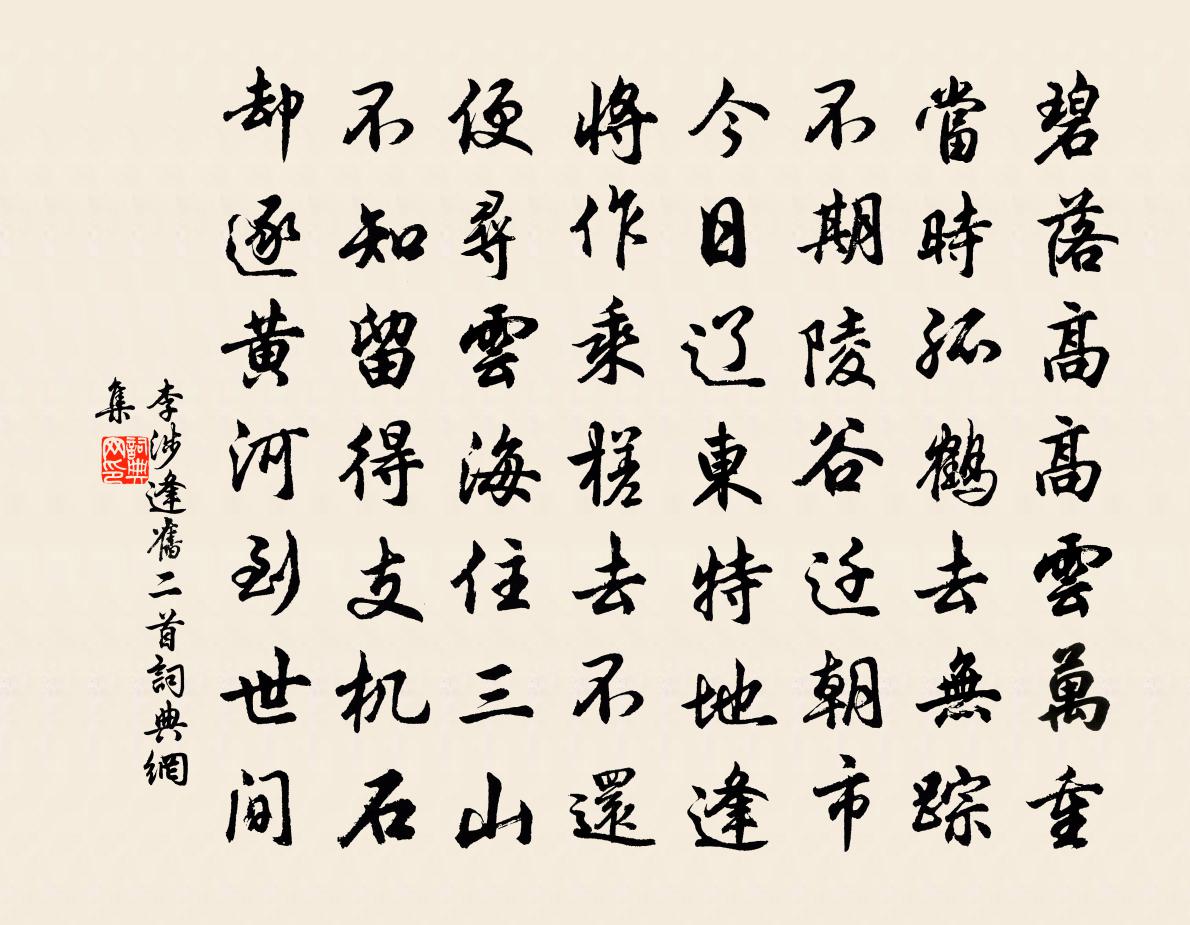 碧落高高雲萬重
當時孤鶴去無踪
不期陵谷迁朝市
今日辽東特地逢
將作乘槎去不還
便尋雲海住三山
不知留得支机石
却逐黄河到世间
李涉逢舊二首詞典網
集
詞典
网印